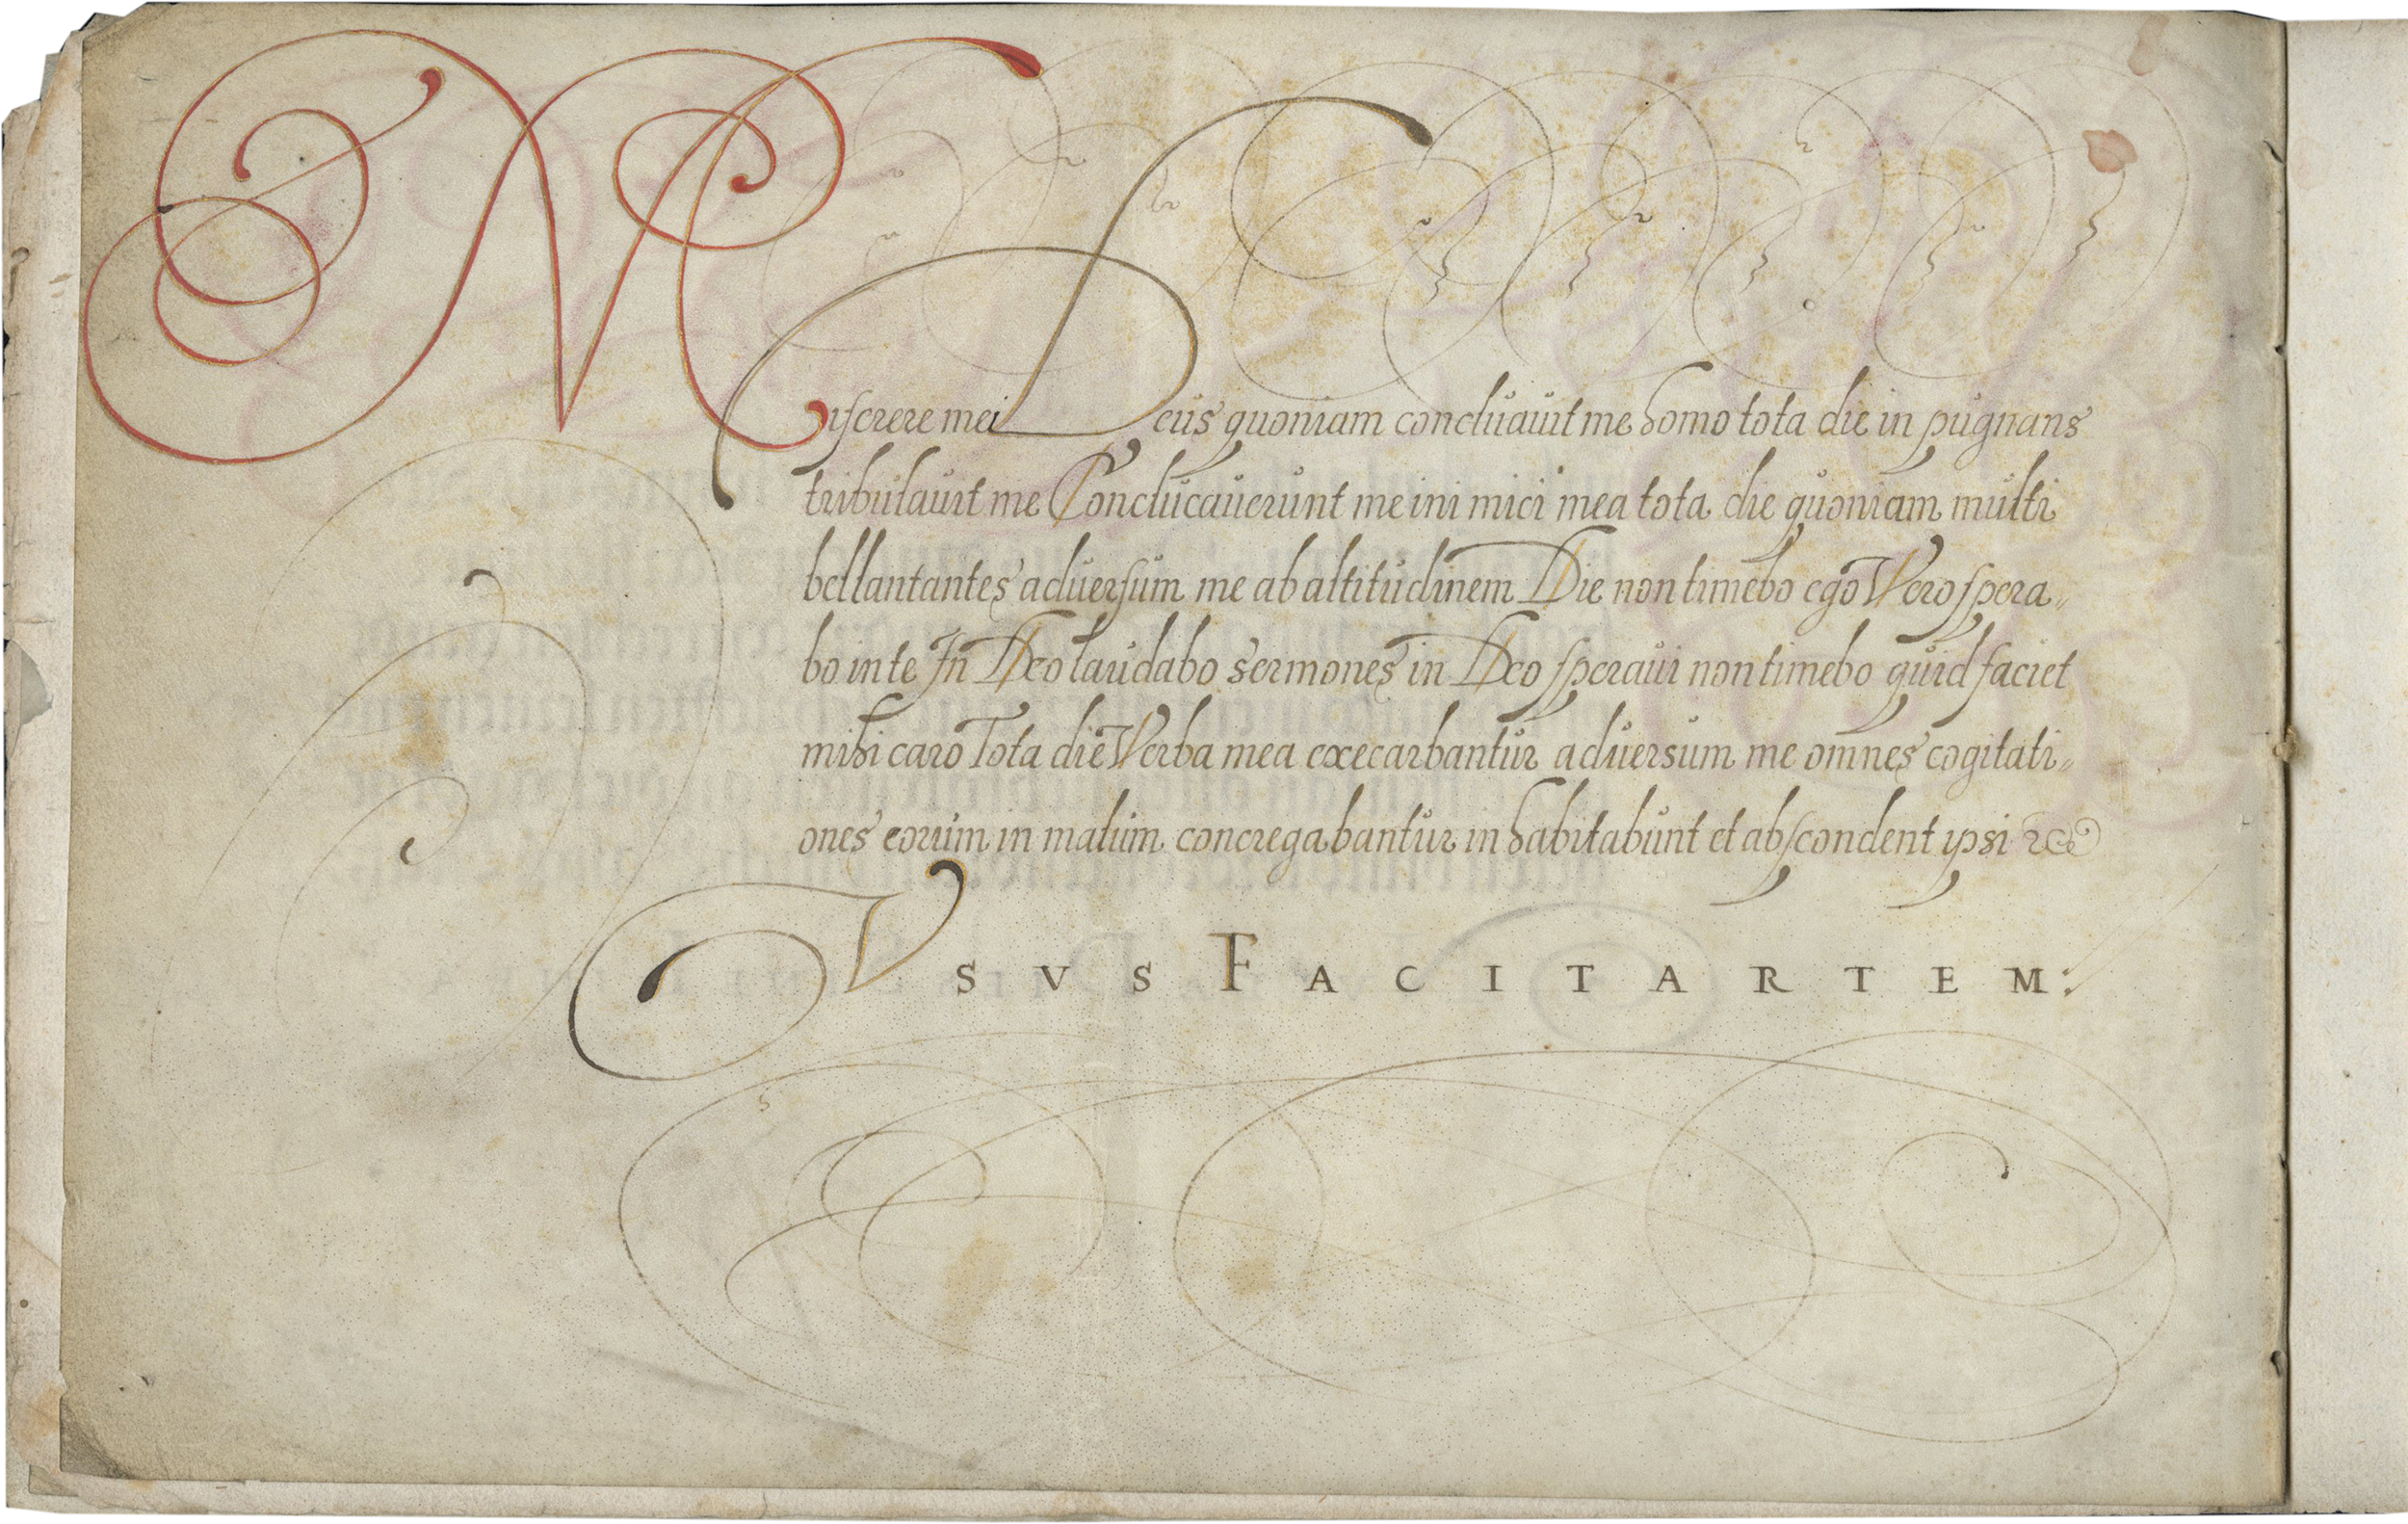 Miserere mei Deus quoniam concluauit me homo tota die in pugnans
tribulauit me Conclucauerunt me ini mici mea tota die quoniam multi
bellantantes aduersum me ab altitudinem Die non timebo ego Vero spera„
bo in te In Deo laudabo sermones in Deo speraui non timebo quid faciet
mihi caro Tota die Verba mea execarbantur aduersum me omnes cogitati„
ones eorum in malum concregabantur inhabitabunt et abscondent ypsi
VSVS FACIT ARTEM: